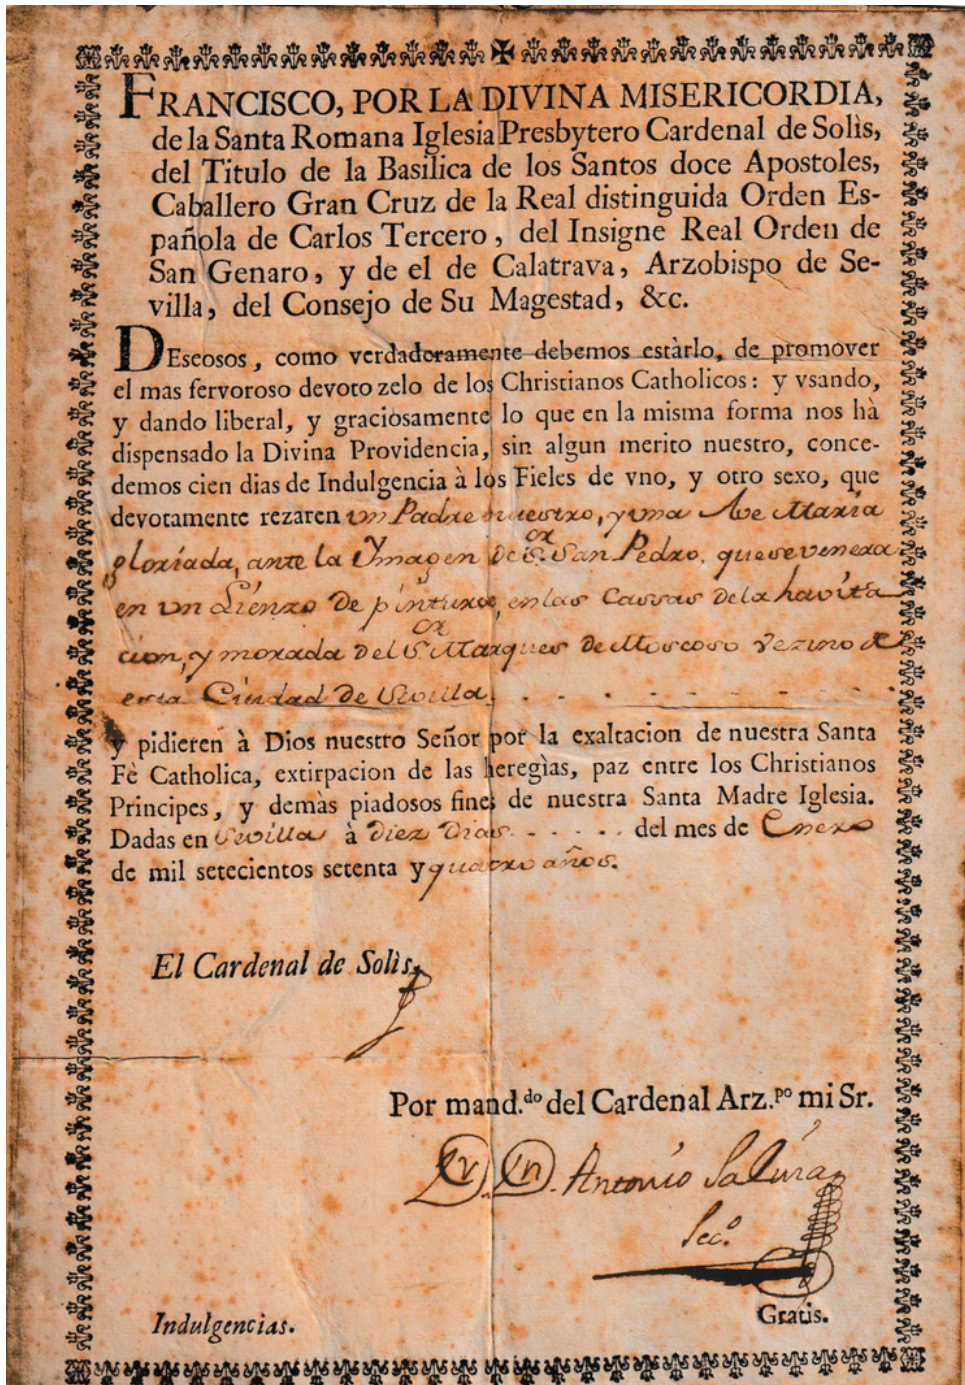 FRANCISCO, POR LA DIVINA MISERICORDIA,
de la Santa Romana Iglesia Presbytero Cardenal de Solìs,
del Titulo de la Basilica de los Santos doce Apostoles,
Caballero Gran Cruz de la Real distinguida Orden Es-
pañola de Carlos Tercero, del Insigne Real Orden de
San Genaro, y de el de Calatrava, Arzobispo de Se-
villa, del Consejo de Su Magestad, &c.
DEseosos, como verdaderamente debemos estàrlo, de promover
el mas fervoroso devoto zelo de los Christianos Catholicos: y vsando,
y dando liberal, y graciosamente lo que en la misma forma nos hà
dispensado la Divina Providencia, sin algun merito nuestro, conce-
demos cien dias de Indulgencia à los Fieles de vno, y otro sexo, que
devotamente rezaren un Padre nuestro, y una Ave Maria
gloriada, ante la Ymagen de S.or San Pedro, que se venera
en un Lienzo de pintura, en las Cassas de la havita
cion, y morada del S.or Marques de Moscoso Vezino de
esta Ciudad de Sevilla, . . . . . . . . .
y pidieren à Dios nuestro Señor por la exaltacion de nuestra Santa
Fè Catholica, extirpacion de las heregìas, paz entre los Christianos
Principes, y demàs piadosos fines de nuestra Santa Madre Iglesia.
Dadas en Sevilla à Diez Dias . . . . . del mes de Enero
de mil setecientos setenta y quatro años.
El Cardenal de Solìs,
Por mand.do del Cardenal Arz.po mi Sr.
Antonio
Sec.o
Gratis.
Indulgencias.